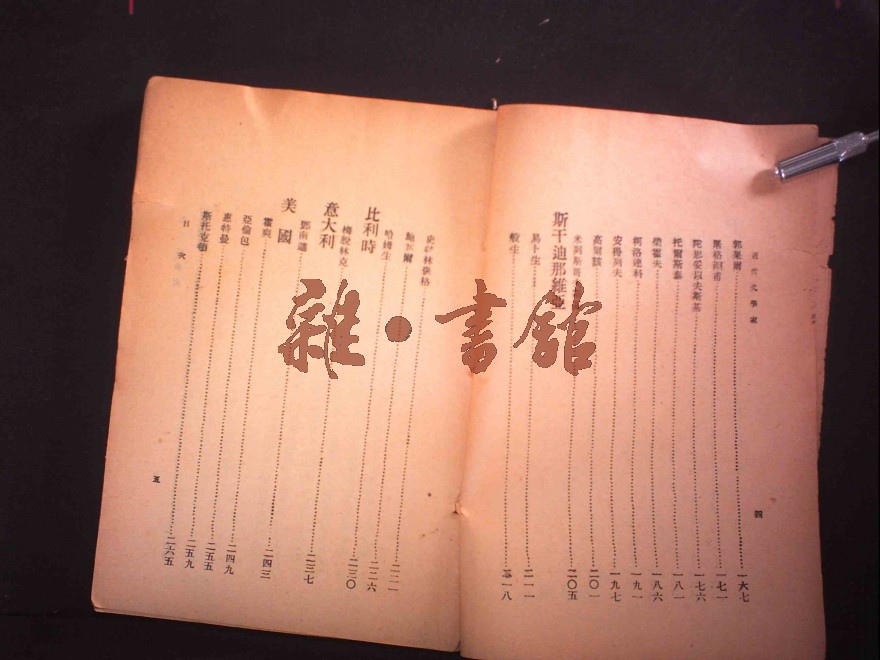 近代文學家
郭果爾……一六七
屠格湼甫……一七一
陀思妥以夫斯基……一七六
托爾斯泰……一八一
柴霍夫……一八六
柯洛連科……一九一
安得列夫……一九七
高爾該……二〇一
米列斯哥……二〇五
斯干迪那維亞
易卜生……二一一
般生……二一八
四
史特林堡格……二二一
鮑以爾
哈姆生……二二六
比利時
梅脫林克……二三〇
意大利
鄧南遮……二三七
美國
霍爽……二四三
亞倫包……二四九
惠特曼……二五五
斯托克頓……二五九
目次
二六五
五
雜·書館